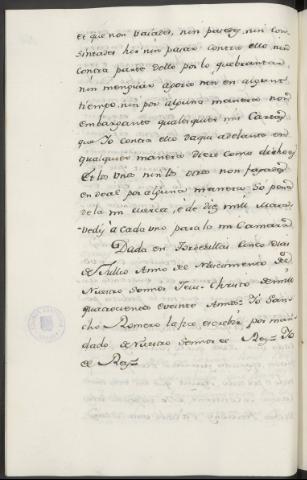 et que non vaiades, nin pasedes, nin con-
sintades hir nin pasar contra ello nin
contra parte dello por lo quebrantar,
nin menguar agora nin en algunt
tiempo, nin por alguna manera non
embargante qualesquier mis Cartas
que Yo contra ello daqui adelante en
qualquier manera diere como dicho es.
Et los unos nin los otros non fagades
en deal por alguna manera so pena
de la mi merced, e de diez mill marave-
vedis a cada uno para la mi Camara
Dada en Tordesillas cinco dias
de Jullio Anno del Nascimiento de
Nuestro Sennor Jesu-Christo de mill
quatrocientos e veinte Annos. Yo San-
cho Romero la fice escrebir por man-
dado de Nuestro Sennor el Rey. Yo
el Rey.